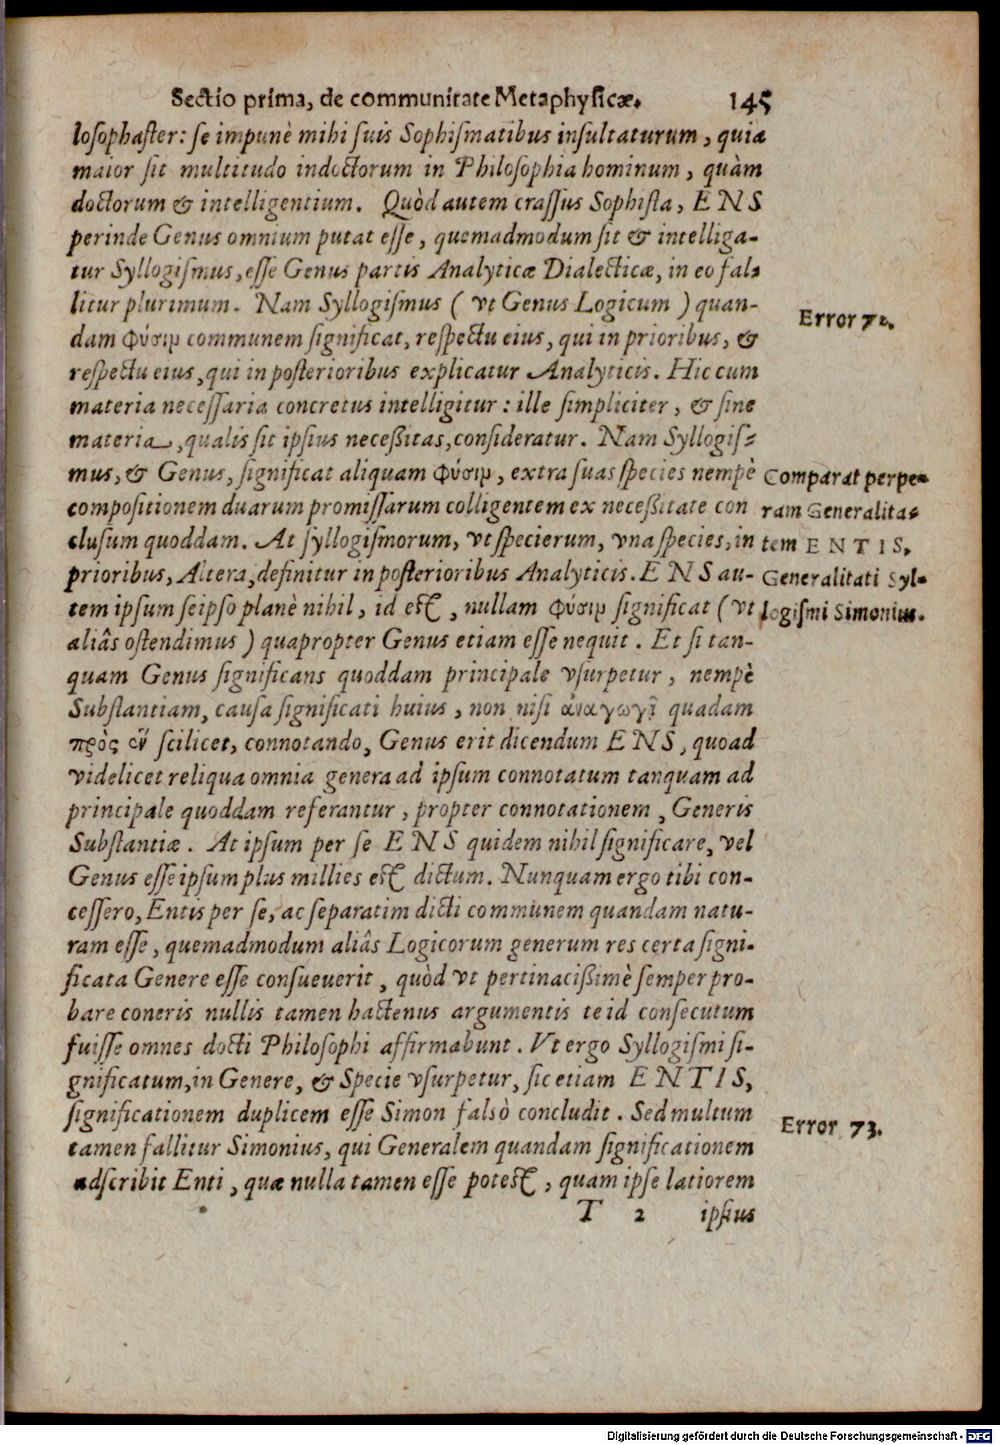 Sectio prima, de communitate Metaphysicæ. 145
losophaster: se impunè mihi suis Sophismatibus insultaturum, quia
maior sit multitudo indoctorum in Philosophia hominum, quàm
doctorum & intelligentium. Quòd autem crassus Sophista, ENS
perinde Genus omnium putat esse, quemadmodum sit & intelliga-
tur Syllogismus, esse Genus partis Analyticæ Dialecticæ, in eo fal-
litur plurimum. Nam Syllogismus (vt Genus Logicum) quan-
Error 72.
dam φύσιμ communem significat, respectu eius, qui in prioribus, &
respectu eius, qui in posterioribus explicatur Analyticis. Hic cum
materia necessaria concretus intelligitur: ille simpliciter, & sine
materia, qualis sit ipsius necessitas, consideratur. Nam Syllogis-
mus, & Genus, significat aliquam φύσιμ, extra suas species nempè
compositionem duarum promissarum colligentem ex necessitate con
clusum quoddam. At syllogismorum, vt specierum, vna species, in
prioribus, Altera, definitur in posterioribus Analyticis. ENS au-
tem ipsum seipso planè nihil, id est, nullam φύσιμ significat (vt
Comparat perpe-
ram Generalita-
tem ENTIS,
Generalitati Syl-
logismi Simonius.
aliâs ostendimus) quapropter Genus etiam esse nequit. Et si tan-
quam Genus significans quoddam principale vsurpetur, nempè
Substantiam, causa significati huius, non nisi ἀναγωγῇ quadam
πρὸς ἓν scilicet, connotando, Genus erit dicendum ENS, quoad
videlicet reliqua omnia genera ad ipsum connotatum tanquam ad
principale quoddam referantur, propter connotationem, Generis
Substantiæ. At ipsum per se ENS quidem nihil significare, vel
Genus esse ipsum plus millies est dictum. Nunquam ergo tibi con-
cessero, Entis per se, ac separatim dicti communem quandam natu-
ram esse, quemadmodum aliâs Logicorum generum res certa signi-
ficata Genere esse consueuerit, quòd vt pertinacissimè semper pro-
bare coneris nullis tamen hactenus argumentis te id consecutum
fuisse omnes docti Philosophi affirmabunt. Vt ergo Syllogismi si-
gnificatum, in Genere, & Specie vsurpetur, sic etiam ENTIS,
significationem duplicem esse Simon falsò concludit. Sed multum
Error 73.
tamen fallitur Simonius, qui Generalem quandam significationem
adscribit Enti, quæ nulla tamen esse potest, quam ipse latiorem
T 2 ipsius
Digitalisierung gefördert durch die Deutsche Forschungsgemeinschaft - DFG